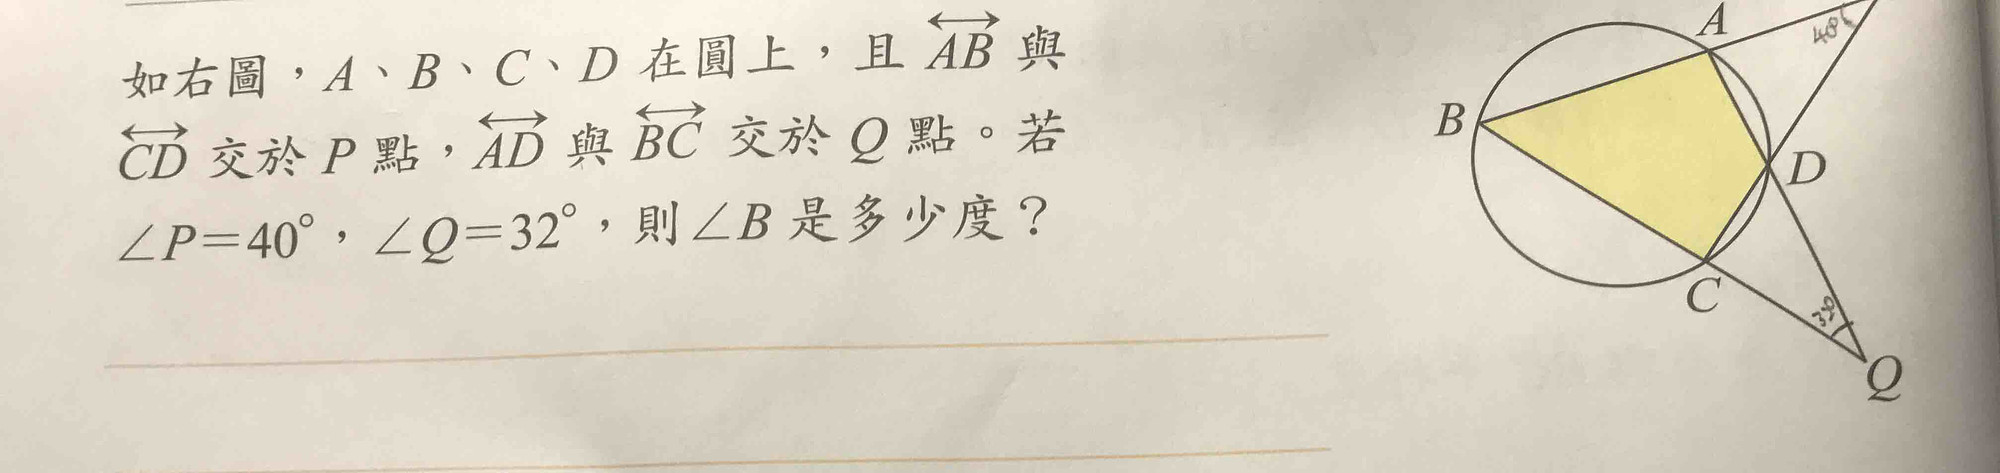 如右圖，A、B、C、D 在圓上，且 AB 與
CD 交於 P 點，AD 與 BC 交於 Q 點。若
∠P=40°，∠Q=32°，則∠B 是多少度？
A
40°
B
D
C
32°
Q